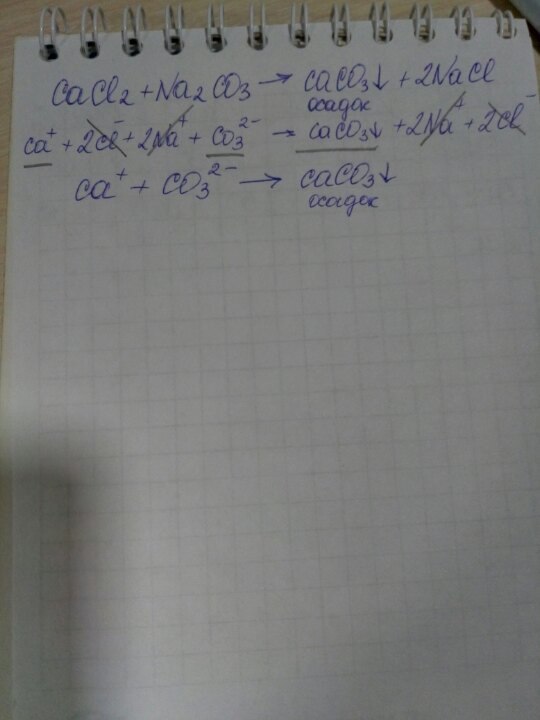 CaCl₂ + Na₂CO₃ → CaCO₃↓ + 2NaCl
осадок
Ca⁺ + 2Cl⁻ + 2Na⁺ + CO₃²⁻ → CaCO₃↓ + 2Na⁺ + 2Cl⁻
Ca⁺ + CO₃²⁻ → CaCO₃↓
осадок